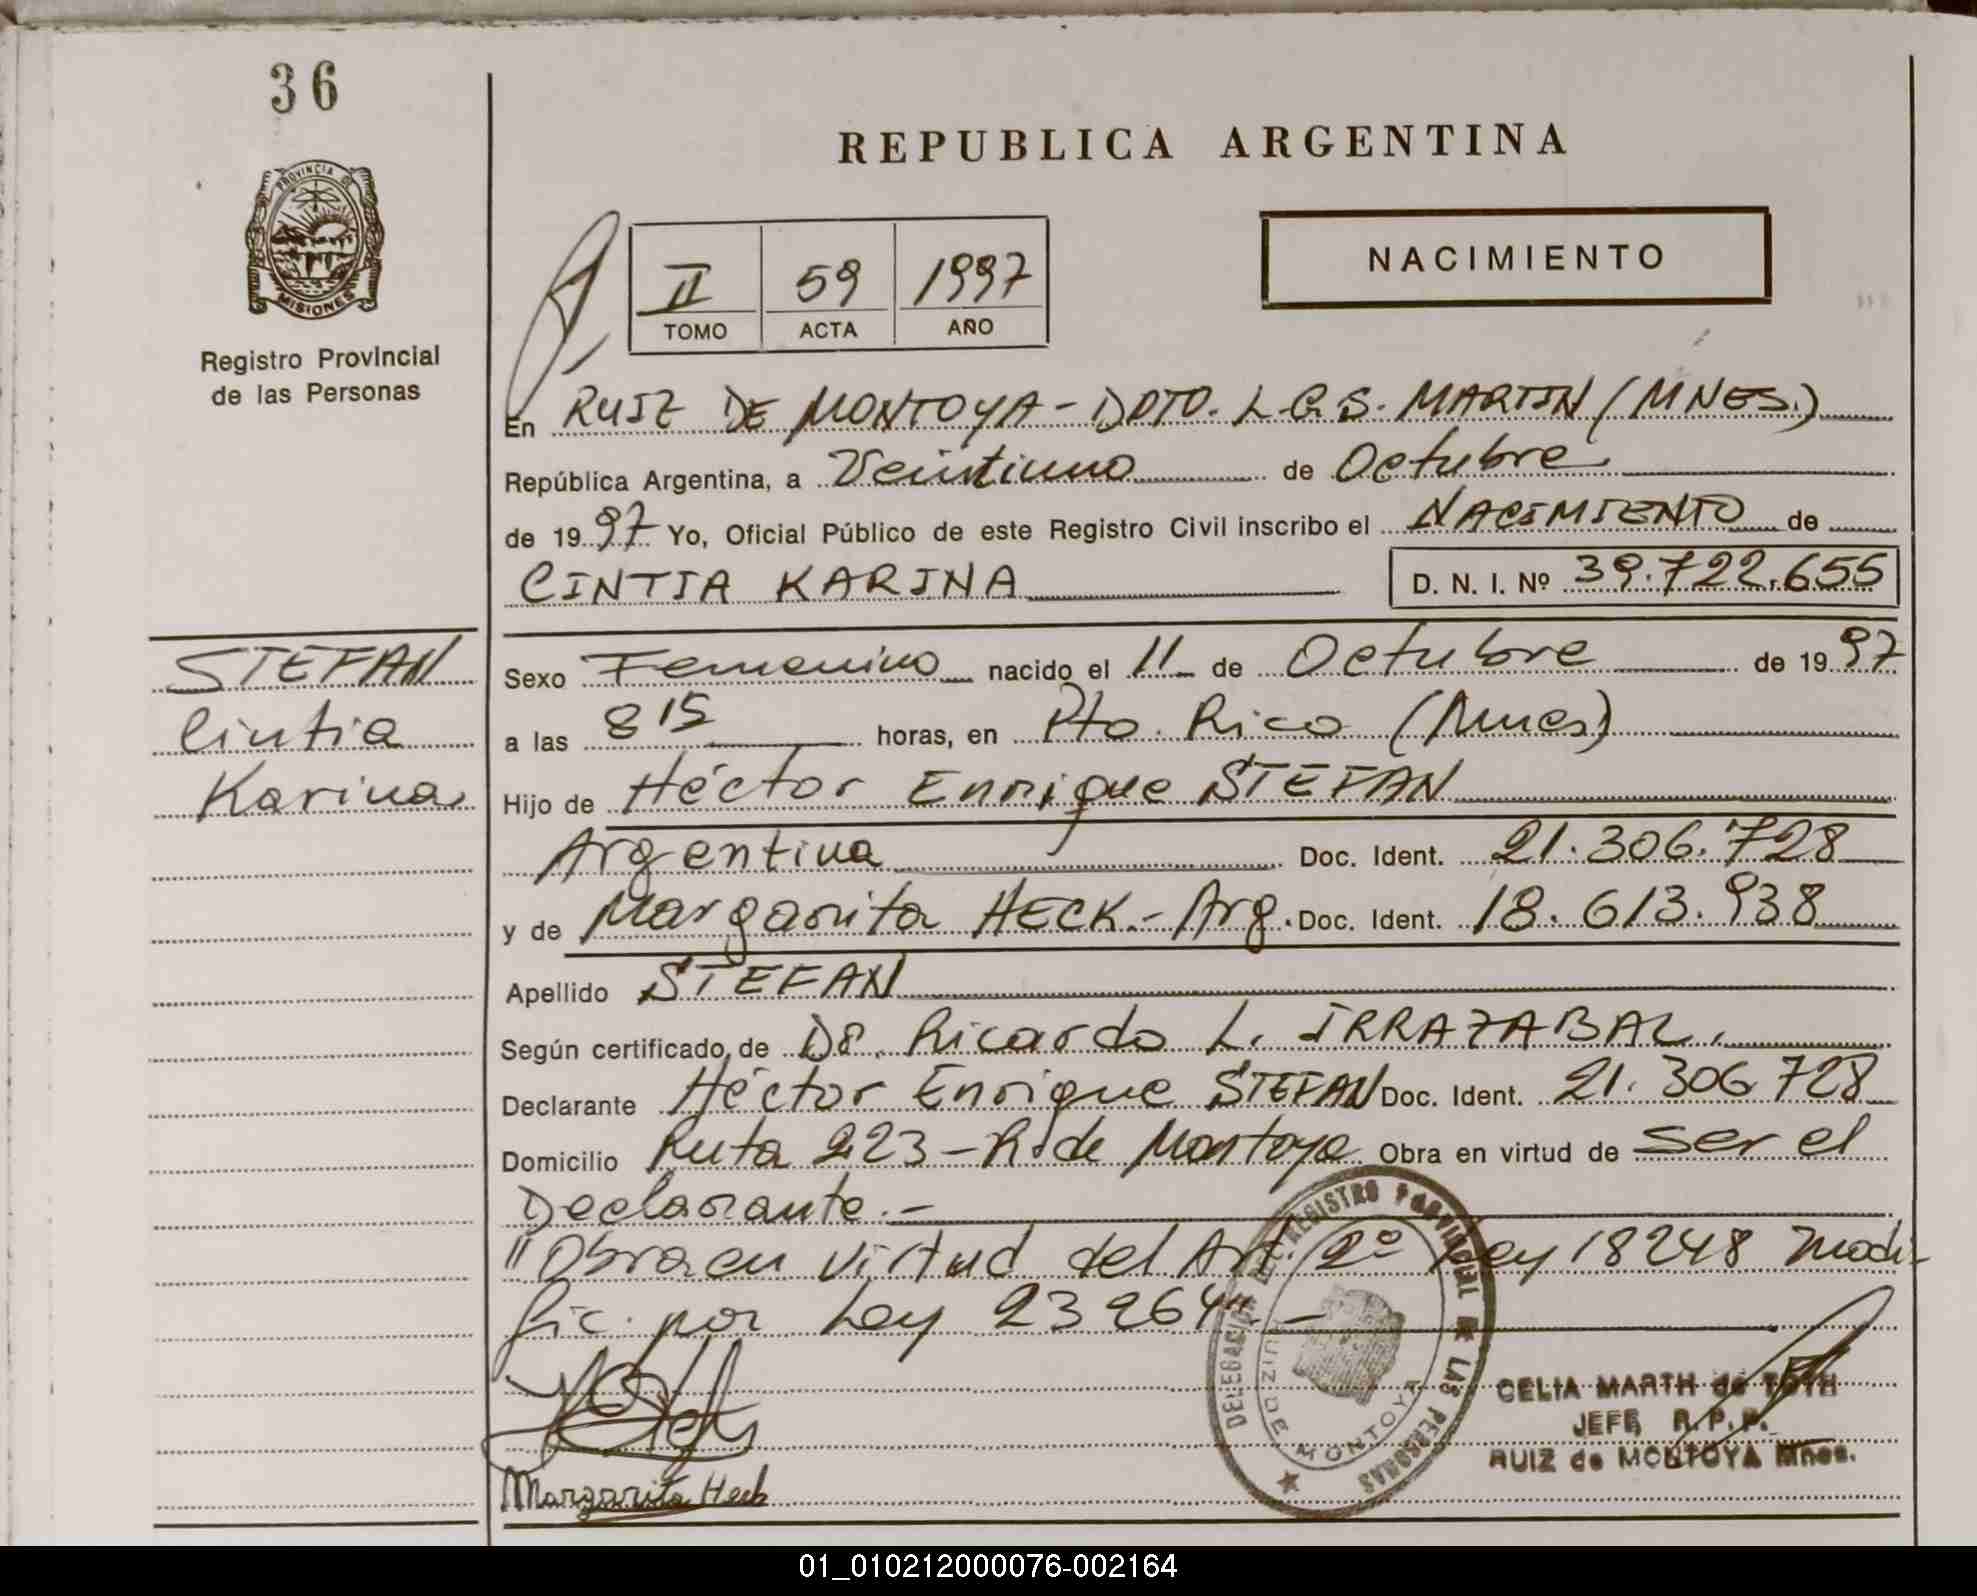 36
REPUBLICA ARGENTINA
PROVINCIA DE
MISIONES
Registro Provincial
de las Personas
II 59 1997
TOMO ACTA AÑO
NACIMIENTO
En RUIZ DE MONTOYA - DPTO. L.G.S. MARTIN (MNES.)
República Argentina, a Veintiuno de Octubre
de 1997 Yo, Oficial Público de este Registro Civil inscribo el NACIMIENTO de
CINTIA KARINA D. N. I. Nº 39.722.655
STEFAN
Cintia
Karina
Sexo Femenino nacido el 11 de Octubre de 1997
a las 8 15 horas, en Pto. Rico (Mnes)
Hijo de Héctor Enrique STEFAN
Argentina Doc. Ident. 21.306.728
y de Margarita HECK.- Arg. Doc. Ident. 18.613.938
Apellido STEFAN
Según certificado de Dr. Ricardo L. IRRAZABAL.
Declarante Héctor Enrique STEFAN Doc. Ident. 21.306.728
Domicilio Ruta 223 - R. de Montoya Obra en virtud de ser el
Declarante.-
"Obra en virtud del Art. 2º Ley 18248 modi-
fic. por Ley 23264".-
DELEGACION DEL REGISTRO PROVINCIAL DE LAS PERSONAS
RUIZ DE MONTOYA
CELIA MARTH de TOTH
JEFE R.P.P.
RUIZ de MONTOYA Mnes.
Margarita Heck
01_010212000076-002164